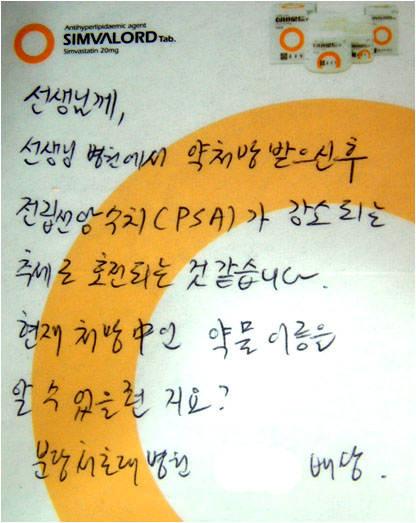 Antihyperlipidaemic agent
SIMVALORD Tab.
Simvastatin 20mg
선생님께,
선생님 병원에서 약처방 받으신후
전립선암수치(PSA)가 감소되는
추세로 호전되는 것 같습니다.
현재 처방中인 약물이름을
알 수 있을런 지요?
분당차한방병원 배상.